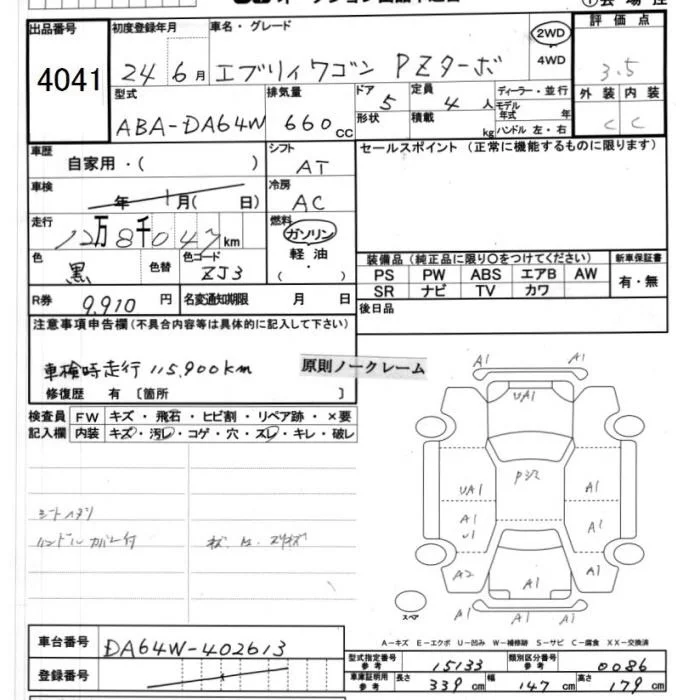 出品番号 初度登録年月 車名・グレード 2WD 評価点
4041 24年6月 エブリィワゴン PZターボ 4WD 3.5
型式 排気量 ドア 5 定員 4人 ディーラー・並行 外装 内装
ABA-DA64W 660cc 形状 積載 kg モデル年式 年 C C
ハンドル 左・右
車歴 自家用・( ) シフト AT セールスポイント (正常に機能するものに限ります)
車検 年 1月( 日) 冷房 AC
走行 12万8千047km 燃料 ガソリン
軽油
・
( )
色 黒 色替 色コード ZJ3 装備品 (純正品に限り○をつけてください) 新車保証書
PS PW ABS エアB AW 有・無
SR ナビ TV カワ
R券 9,910円 名変通知期限 月 日 後日品
注意事項申告欄(不具合内容等は具体的に記入して下さい)
車検時走行 115,900km 原則ノークレーム
修復歴 有 〔箇所 〕
検査員 FW キズ・飛石・ヒビ割・リペア跡・×要
記入欄 内装 キズ・汚レ・コゲ・穴・スレ・キレ・破レ
A1 A1
UA1
Pシミ
UA1 A1
A1 A1
U1
A2 A1 A1
A1 A1 A1
シートヘタリ
ハンドルカバー付
スペア
A-キズ E-エクボ U-凹み W-補修跡 S-サビ C-腐食 XX-交換済
車台番号 DA64W-402613
登録番号
型式指定番号 参考 15133 類別区分番号 参考 0086
車庫証明用 参考 長さ 339cm 幅 147cm 高さ 179cm